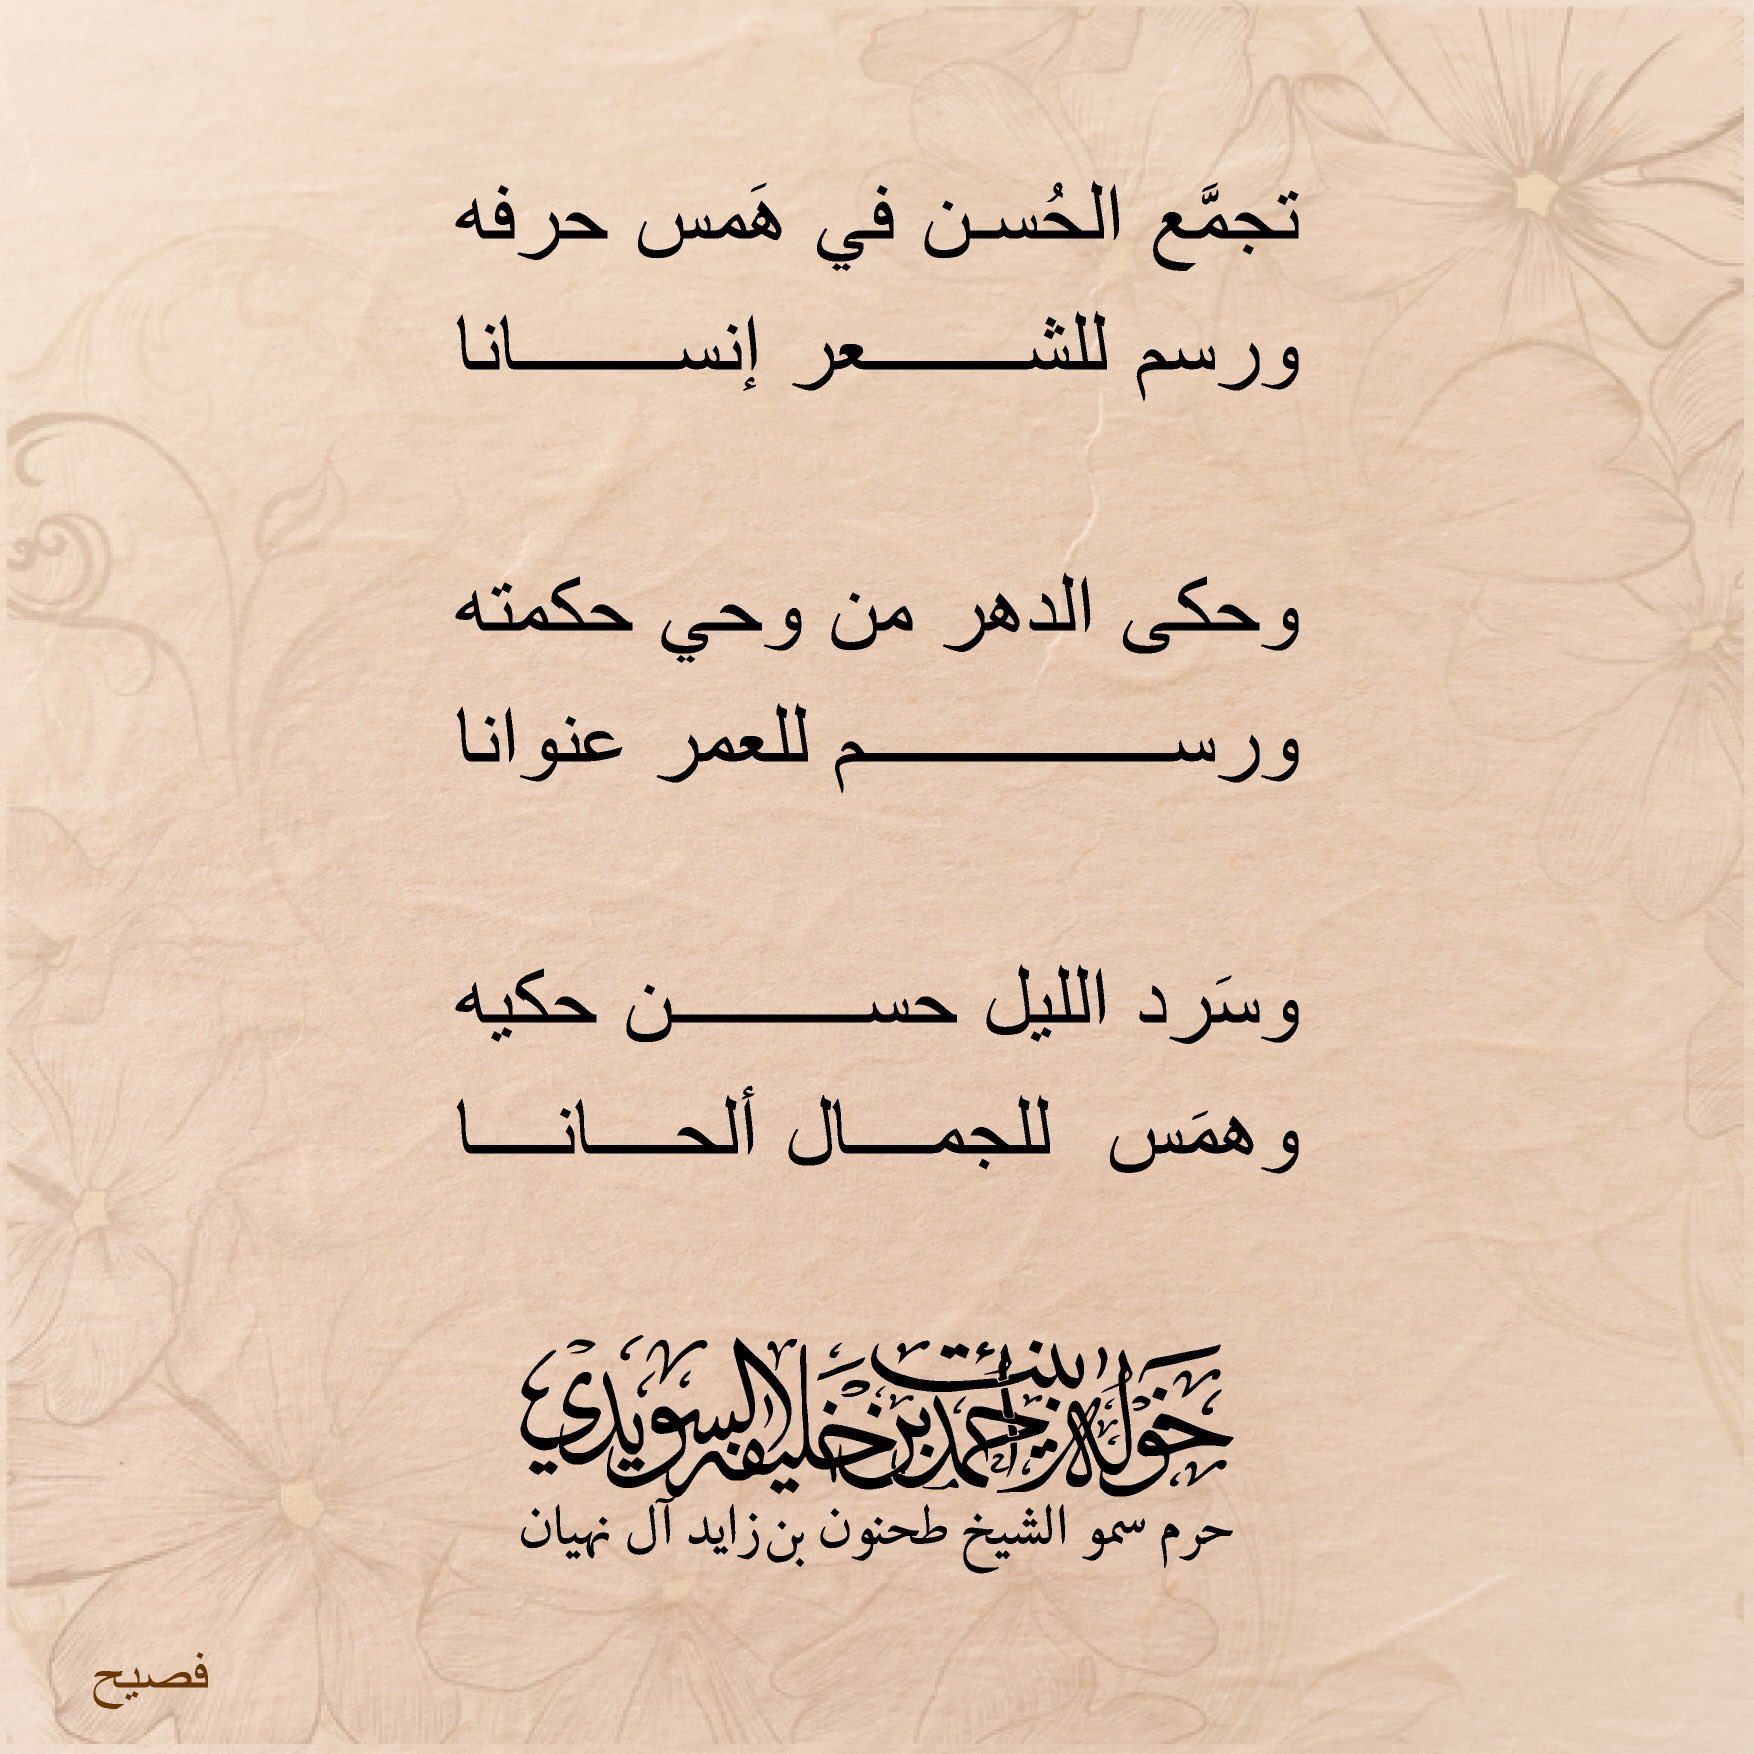 تجمَّع الحُسن في هَمس حرفه
ورسم للشعر إنسانا
وحكى الدهر من وحي حكمته
ورسم للعمر عنوانا
وسَرد الليل حسن حكيه
وهمَس للجمال ألحانا
خولة بنت أحمد بن خليفة السويدي
حرم سمو الشيخ طحنون بن زايد آل نهيان
فصيح